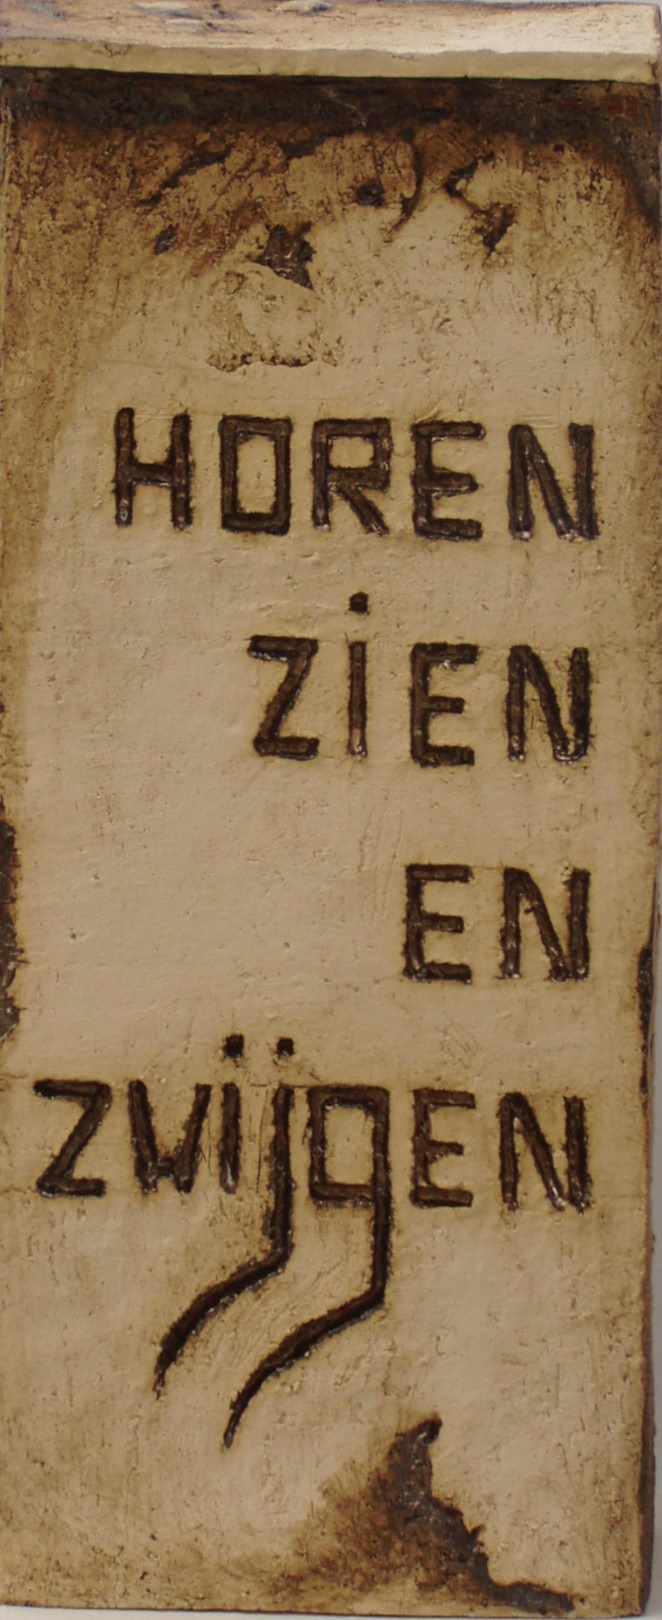 HOREN
ZiEN
EN
ZWijgEN